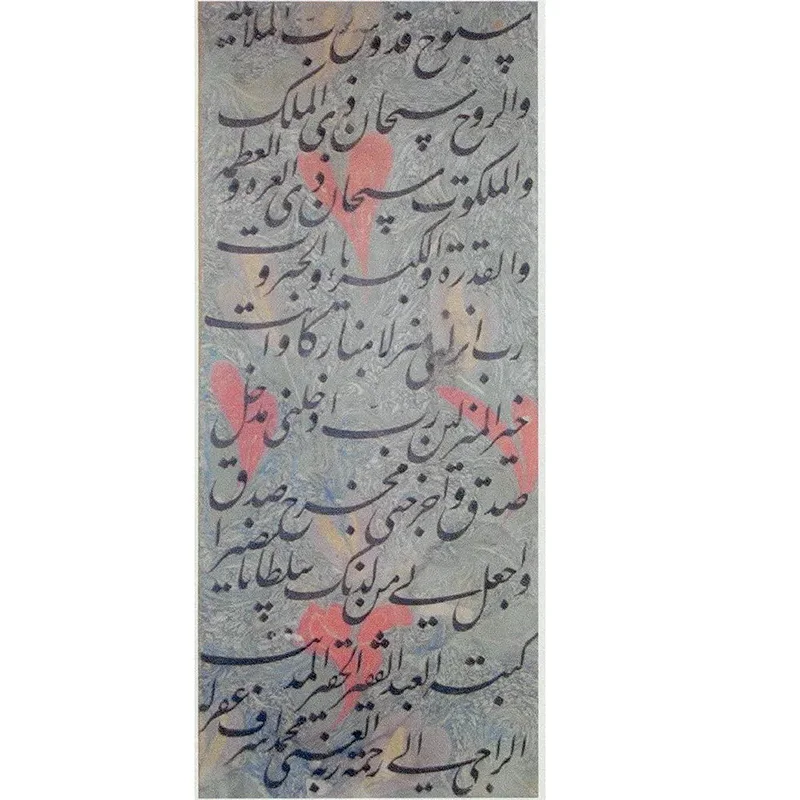 سبوح قدوس رب الملائكة
والروح سبحان ذي الملك
والملكوت سبحان ذي العزة و العظمة
والقدرة والكبرياء والجبروت
رب انزلني منزلا مباركا وانت
خير المنزلين رب ادخلني مدخل
صدق واخرجني مخرج صدق
واجعل لي من لدنك سلطانا نصيرا
كتبه العبد الفقير الحقير المذنب
الراجي الى رحمة ربه الغني محمد اشرف غفر له